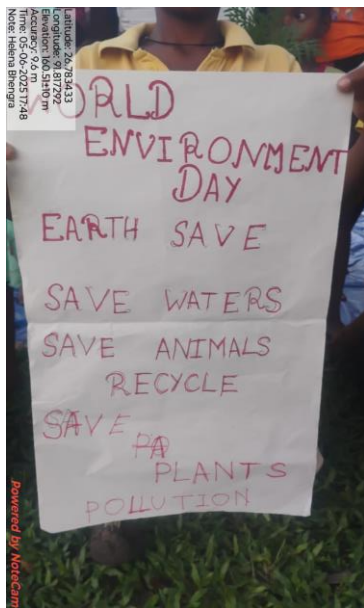 Latitude: 26.783433
Longitude: 91.817292
Elevation: 166.51±10 m
Accuracy: 9.6 m
Time: 05-06-2025 17:48
Note: Helena Bhengra
WORLD
ENVIRONMENT
DAY
EARTH SAVE
SAVE WATERS
SAVE ANIMALS
RECYCLE
SAVE
PLANTS
POLLUTION
Powered by NoteCam